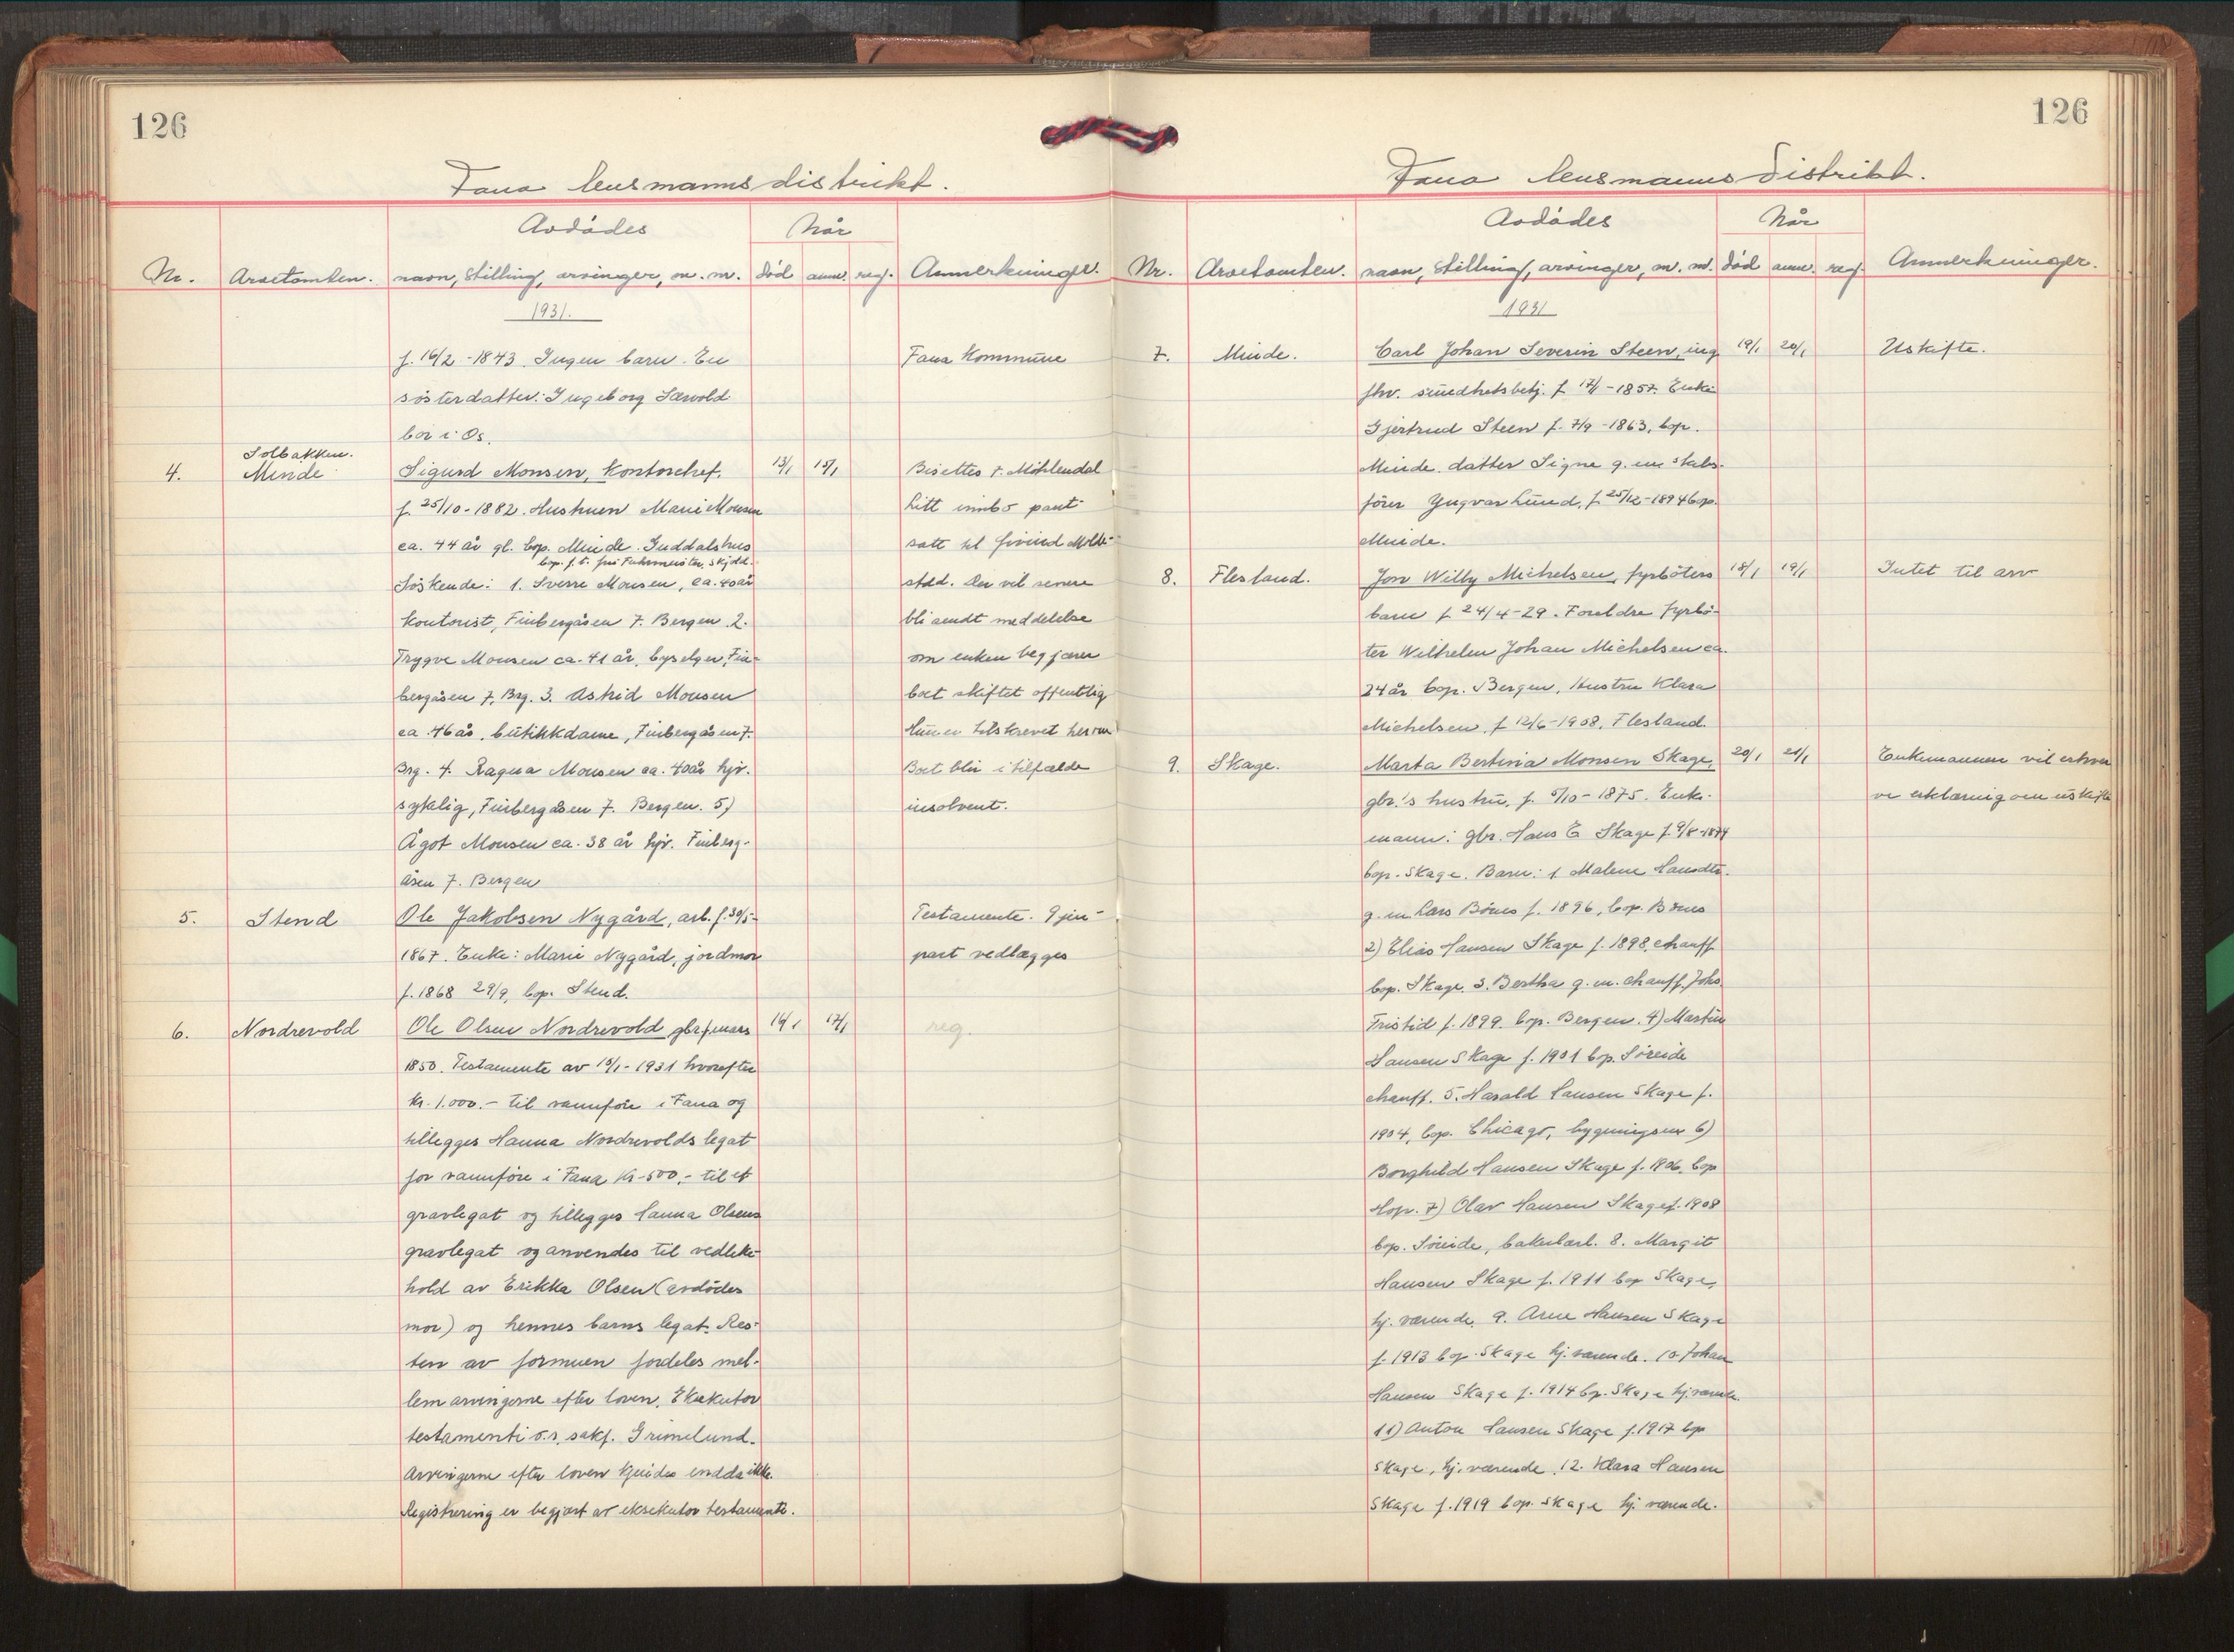 126
Fana lensmannsdistrikt.
Avdødes
Når
Nr. Avsetomten. navn, stilling, arvinger, m. m. død anm. reg. Anmerkninger.
1931.
f. 16/2 - 1843. Ingen barn. En
Fana Kommune
søsterdatter: Ingeborg Særvold
bor i Os.
Solbakken.
4. Minde Sigurd Monsen, Kontorchef. 13/1 15/1 Bisettes f. Möhlendal
f. 25/10 - 1882. Hustruen Marie Monsen
Litt innbo pant-
ca. 44 år gl. bop. Minde. Guddalshus
satt til
bop. f. t. frü Fuhrmeister, Skjold.
Søskende: 1. Sverre Monsen, ca. 40 år
stad. Der vil senere
kontorist, Finbergåsen 7. Bergen 2.
bli sendt meddelelse
Trygve Monsen ca. 41 år, byselger, Fin-
om enken begjærer
bergåsen 7, Brg. 3. Astrid Monsen
boet skiftet offentlig
ca. 46 år, bütikkdame, Finbergåsen 7.
Hun er tilskrevet herom
Brg. 4. Ragna Monsen ca. 40 år hjv.
Boet blir i tilfælde
sykelig, Finbergåsen 7. Bergen. 5)
insolvent.
Ågot Monsen ca. 38 år hjv. Finberg-
åsen 7. Bergen
5. Stend Ole Jakobsen Nygård, arb. f. 30/5- Testamente. Gjen-
1867. Enke: Marie Nygård, jordmor
part vedlægges
f. 1868 29/9, bop. Stend.
6. Nordrevold Ole Olsen Nordrevold gbr. f. mars 14/1 17/1 reg.
1850. Testamente av 10/1 - 1931 hvorefter
kr. 1.000.- til vanføre i Fana og
tillegges Hanna Nordrevolds legat
for vanføre i Fana kr. 500.- til et
gravlegat og tillegges Hanna Olsens
gravlegat og anvendes til vedlike-
hold av Erikka Olsen (avdødes
mor) og hennes barns legat. Res-
ten av formuen fordeles mel-
lem arvingerne efter loven. Eksekutor
testamenti o.r. sakf. Grimelund.
Arvingerne efter loven kjendes endda ikke.
Registrering er begjært av eksekutor testamenti.
126
Fana lensmanns distrikt.
Avdødes
Når
Nr. Avsetomten. navn, stilling, arvinger, m. m. død anm. reg. Anmerkninger.
1931
7. Minde. Carl Johan Severin Steen, ing. 19/1 20/1 Uskifte.
fhv. sundhetsbetj. f. 17/1 - 1857. Enke
Gjertrud Steen f. 7/9 - 1863, bop.
Minde. datter Signe g. m. skibs-
fører Yngvar Lund, f. 25/12 - 1894 bop.
Minde.
8. Flesland. Jon Willy Michelsen, fyrbøters 18/1 19/1 Intet til arv
barn f. 24/4 - 29. Foreldre fyrbø-
ter Wilhelm Johan Michelsen ca.
24 år bop. Bergen, Hustru Klara
Michelsen f. 12/6 - 1908, Flesland.
9. Skage. Marta Bertina Monsen Skage, 20/1 21/1 Enkemannen vil erhver
gbr.'s hustru, f. 5/10 - 1875. Enke-
ve erklæring om uskifte
mann: gbr. Hans E Skage f. 9/8 - 1874
bop. Skage. Barn: 1. Malene Hansdtr.
g. m. Lars Bønes f. 1896, bop. Bønes
2) Elias Hansen Skage f. 1898, chauff.
bop. Skage. 3. Bertha g. m. chauff. Johs.
Fristid f. 1899. bop. Bergen. 4) Martin
Hansen Skage f. 1901 bop. Søreide
chauff. 5. Harald Hansen Skage f.
1904, bop. Chicago, bygningsm 6)
Borghild Hansen Skage f. 1906, bop
Hop. 7) Olav Hansen Skage f. 1908
bop. Søreide, bakerlærl. 8. Margit
Hansen Skage f. 1911 bop Skage,
hj. værende. 9. Arne Hansen Skage
f. 1913 bop. Skage hj. værende. 10. Johan
Hansen Skage f. 1914 bp. Skage hj. værende.
11) Anton Hansen Skage f. 1917 bp
Skage, hj. værende. 12. Klara Hansen
Skage f. 1919 bop. Skage hj. værende.